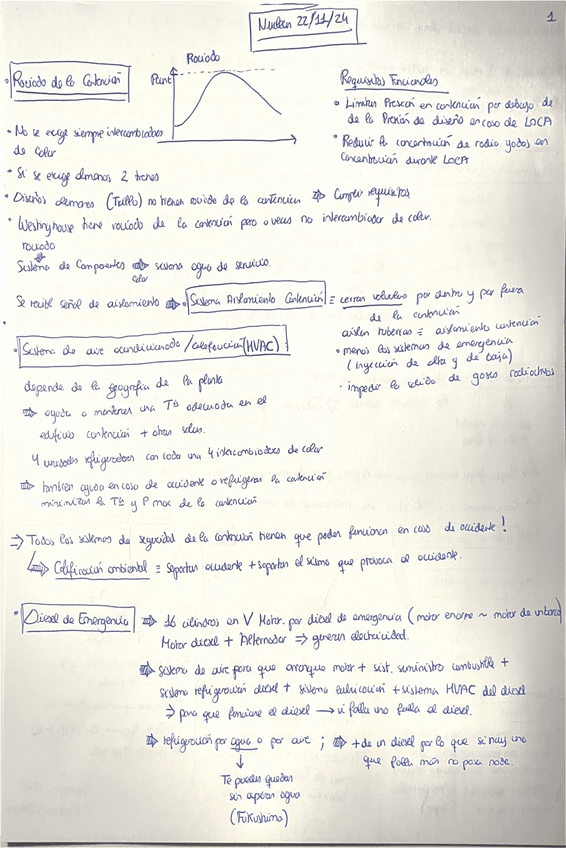 Nuclear 22/11/24
1
• Rociado de la Contención
Rociado
Pcont
Requisitos Funcionales
• Limitar Presión en contención por debajo de
de la Presión de diseño en caso de LOCA
• Reducir la concentración de radio yodos en
concentración durante LOCA
• No se exige siempre intercambiador
de calor
• Si se exige al menos 2 trenes
• Diseños alemanes (Trillo) no tienen rociado de la contención ⇒ Cumplir requisitos
• Westinghouse tiene rociado de la contención pero a veces no intercambiador de calor.
rociado
Sistema de Componentes ⇒ sistema agua de servicio.
calor
Se recibe señal de aislamiento ⇒ • Sistema Aislamiento Contención ≡ cerrar válvulas por dentro y por fuera
de la contención
aislan tuberías ≡ aislamiento contención
• menos los sistemas de emergencia
(inyección de alta y de baja)
• impedir la salida de gases radiactivos
• Sistema de aire acondicionado / calefacción (HVAC)
depende de la geografía de la planta
⇒ ayuda a mantener una Tª adecuada en el
edificio contención + otras salas.
4 unidades refrigeradoras con cada una 4 intercambiadores de calor
⇒ también ayuda en caso de accidente a refrigerar la contención
minimizar la Tª y P max de la contención
⇒ Todos los sistemas de seguridad de la contención tienen que poder funcionar en caso de accidente!
⇒ Calificación ambiental ≡ soportar accidente + soportar el sismo que provoca el accidente.
• Diesel de Emergencia ⇒ 16 cilindros en V Motor. por diesel de emergencia (motor enorme ~ motor de un barco)
Motor diesel + Alternador ⇒ generan electricidad.
⇒ sistema de aire para que arranque motor + sist. suministro combustible +
sistema refrigeración diesel + sistema lubricación + sistema HVAC del diesel
⇒ para que funcione el diesel → si falla uno falla el diesel.
⇒ refrigeración por agua o por aire ; ⇒ + de un diesel por lo que si hay uno
que falla más no pasa nada.
↓
Te puedes quedar
sin aspirar agua
(Fukushima)